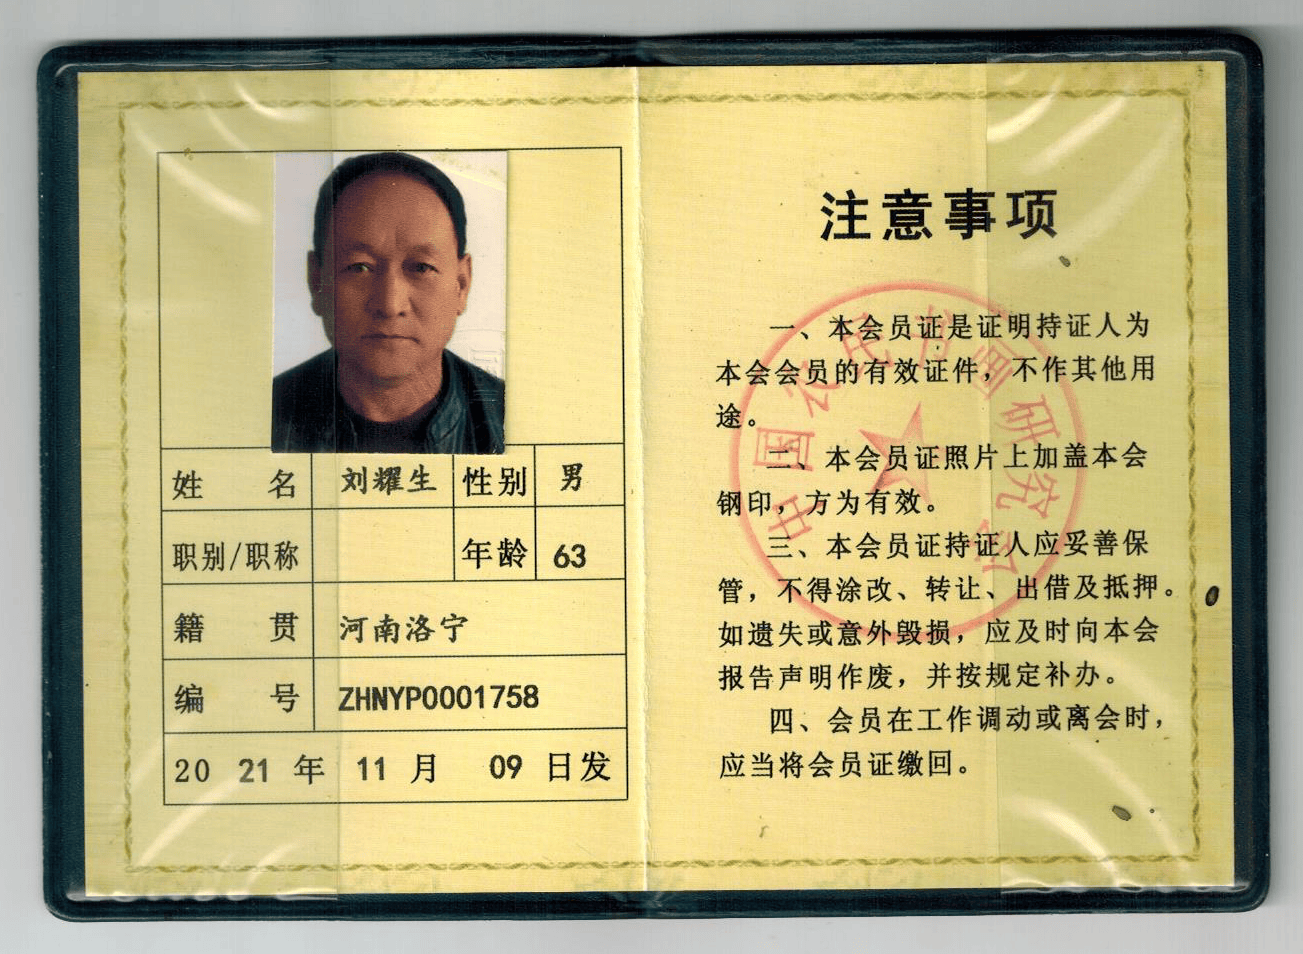 姓 名 刘耀生 性别 男
职别/职称 年龄 63
籍 贯 河南洛宁
编 号 ZHNYP0001758
20 21 年 11 月 09 日发
注意事项
一、本会员证是证明持证人为
本会会员的有效证件，不作其他用
途。
二、本会员证照片上加盖本会
钢印，方为有效。
三、本会员证持证人应妥善保
管，不得涂改、转让、出借及抵押。
如遗失或意外毁损，应及时向本会
报告声明作废，并按规定补办。
四、会员在工作调动或离会时，
应当将会员证缴回。
中国农民书画研究会